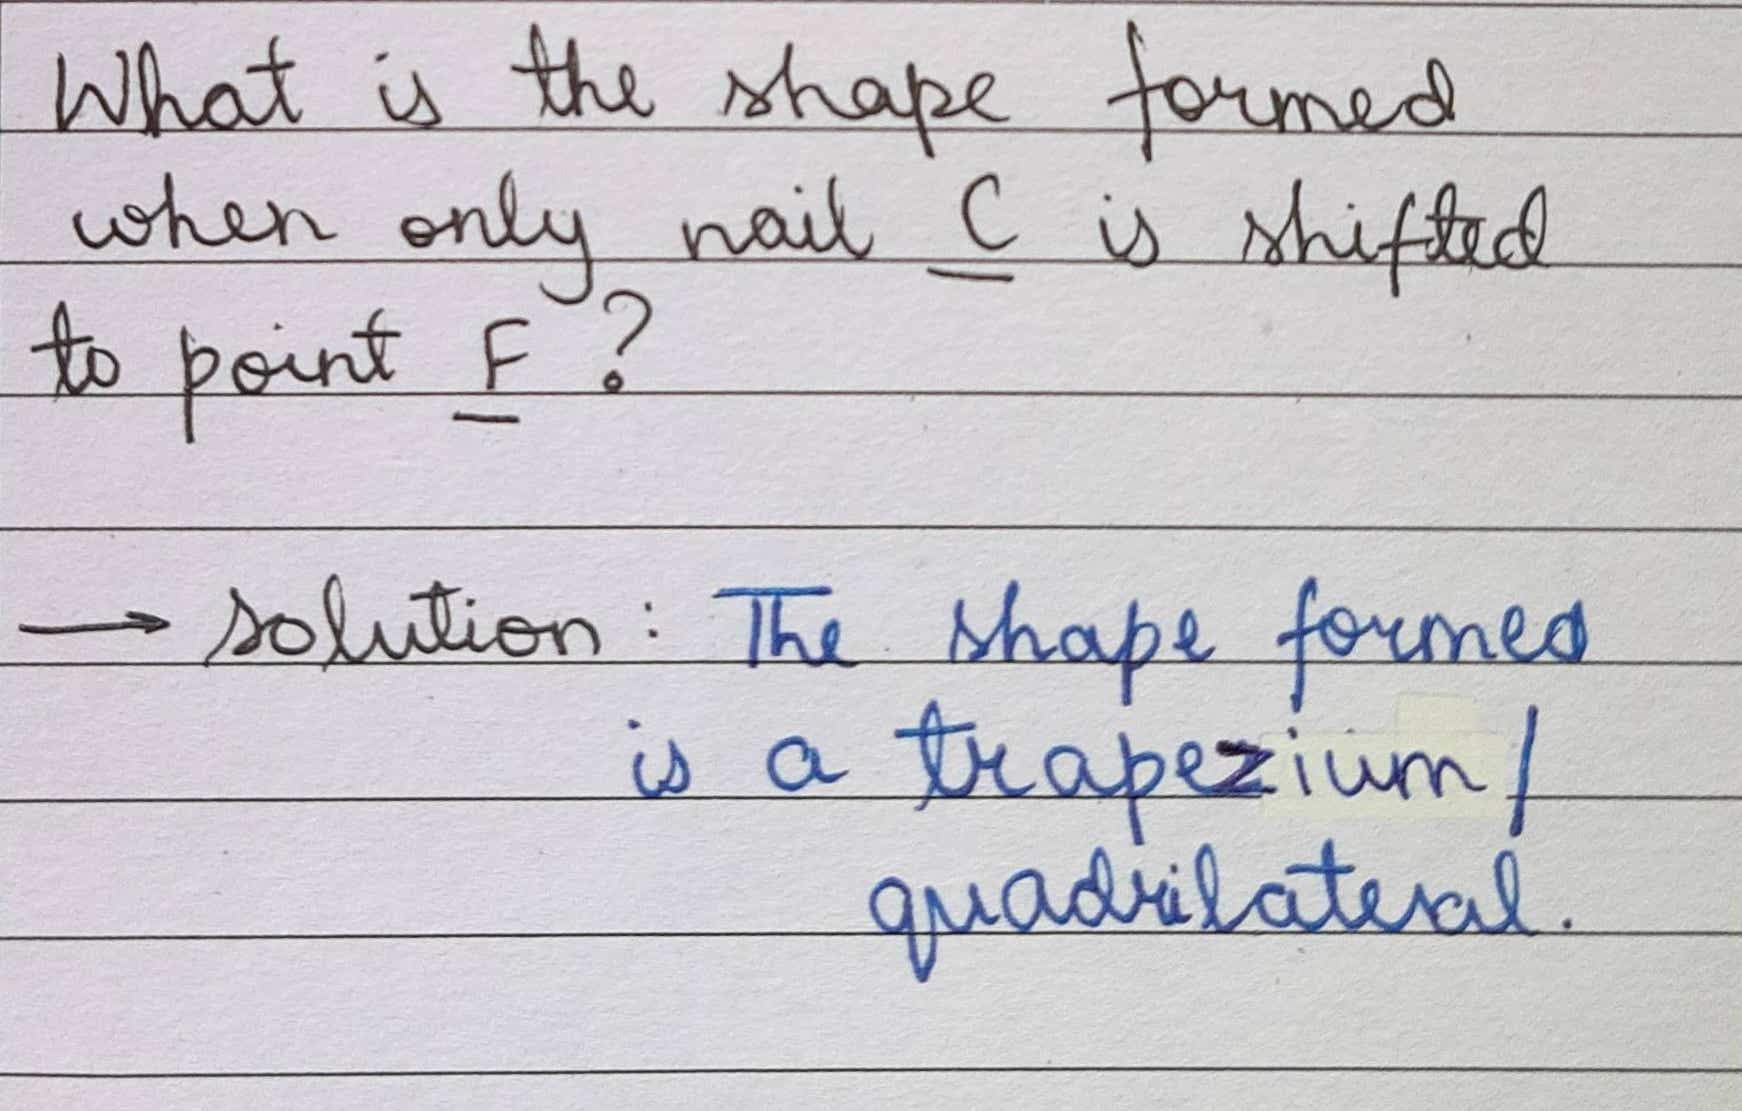 What is the shape formed
when only nail C is shifted
to point F ?
→ solution : The shape formed
is a trapezium /
quadrilateral.